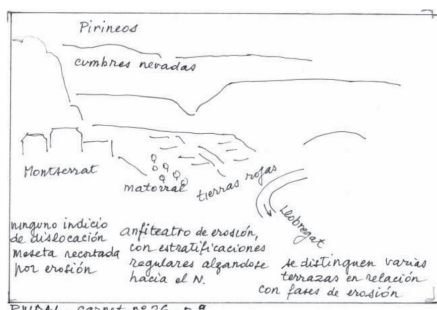 Pirineos
cumbres nevadas
Montserrat
matorral
tierras rojas
Llobregat
ninguno indicio
de dislocación
Meseta recortada
por erosión
anfiteatro de erosión,
con estratificaciones
regulares alzandose
hacia el N.
se distinguen varias
terrazas en relación
con fases de erosión
carnet nº 26